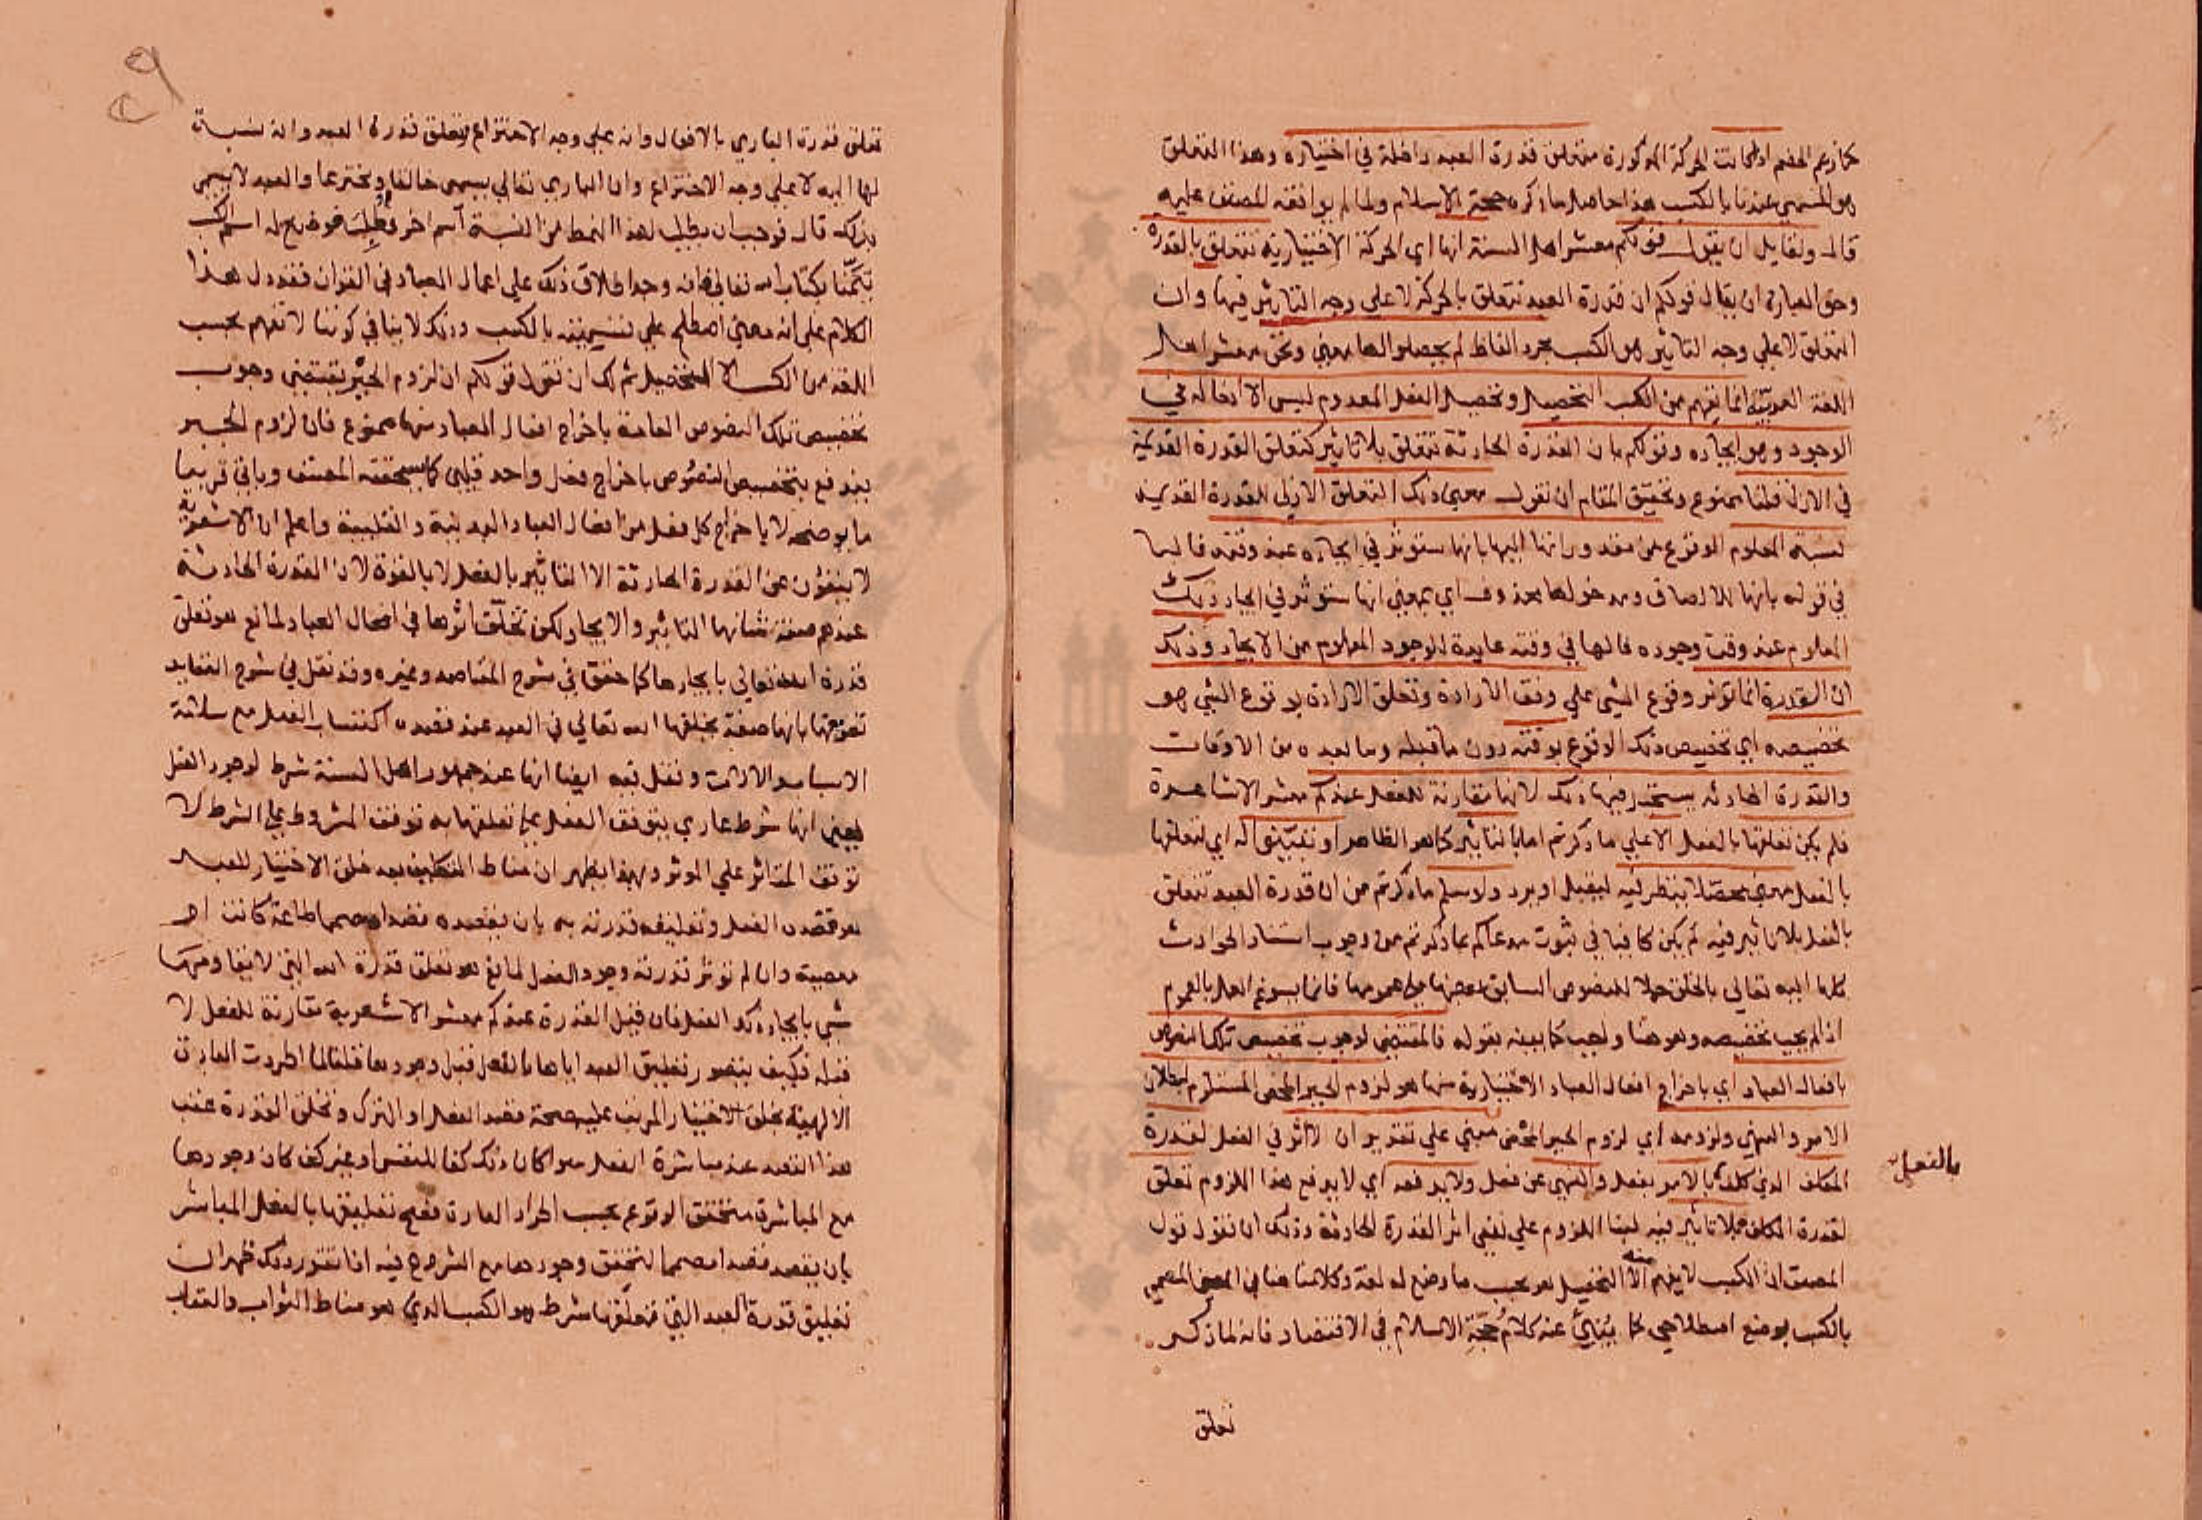 كما زعم الخصم اذ كانت الحركة المذكورة متعلق قدرة العبد داخلة في اختياره وهذا التعلق
هو المسمى عندنا بالكسب هذا حاصل ما ذكره حجة الاسلام ولما لم يوافقه المصنف عليه
قال ولقايل ان يقول قولكم معشر اهل السنة انها اي الحركة الاختيارية تتعلق بالقدرة
وحق العبارة ان يقال قولكم ان قدرة العبد تتعلق بالحركة لا على وجه التاثير فيها وان
التعلق لا على وجه التاثير هو الكسب مجرد الفاظ لم يحصلوا لها معنى ونحن معشر اهل
اللغة العربية انما نفهم من الكسب التحصيل وتحصيل الفعل المعدوم ليس الا ادخاله في
الوجود وهو ايجاده وقولكم بان القدرة الحادثة تتعلق بلا تاثير كتعلق القدرة القديمة
في الازل قلنا ممنوع وتحقيق المقام ان نقول معنى ذلك التعلق الازلي للقدرة القديمة
نسبة المعلوم الوقوع من مقدوراتها اليها بانها ستوثر في ايجاده عند وقته فالبا
في قوله بانها للالصاق ومدخولها محذوف اي بمعنى انها ستوثر في ايجاد ذلك
المعلوم عند وقت وجوده فالها في وقته عايدة للوجود المعلوم من الايجاد وذلك
ان القدرة انما توثر وقوع الشي على وفق الارادة وتعلق الارادة بوقوع الشي هو
تخصيصه اي تخصيص ذلك الوقوع بوقته دون ما قبله وما بعده من الاوقات
والقدرة الحادثه يستحيل فيها ذلك لانها مقارنة للفعل عندكم معشر الاشاعرة
فلم يكن تعلقها بالفعل الا على ما ذكرتم اما بالتاثير كما هو الظاهر او تبينوا له اي لتعلقها
بالفعل معنى محصلا ينظر فيه ليقبل او يرد ولو سلم ما ذكرتم من ان قدرة العبد تتعلق
بالفعل بلا تاثير فيه لم يكن كافيا في ثبوت مدعاكم بما ذكرتم من وجوب استناد الحوادث
كلها اليه تعالى بالخلق حملا للنصوص السابق بعضها على عمومها فانما يسوغ العمل بالعموم
اذا لم يجب تخصيصه وهو هنا واجب كما بينه بقوله فالمقتضي لوجوب تخصيص تلك النصوص
بافعال العباد اي باخراج افعال العباد الاختيارية منها هو لزوم الجبر المحض المستلزم لبطلان
الامر والنهي ولزومه اي لزوم الجبر المحض مبني على تقدير ان لا اثر في الفعل لقدرة
المكلف الذي كلف بالامر بفعل والنهي عن فعل ولا يدفعه اي لا يدفع هذا اللزوم تعلق
بالفعل
لقدرة المكلف بلا تاثير فيه لبنا اللزوم على نفي اثر القدرة الحادثة ولك ان تقول قول
المصنف ان الكسب لا يفهم منه الا التحصيل هو بحسب ما وضع له لغة وكلامنا هنا في المعنى المسمى
بالكسب بوضع اصطلاحي كما ينبئ عنه كلام حجة الاسلام في الاقتصاد فانه لما ذكر
تعلق
تعلق قدرة الباري بالافعال وانه على وجه الاختراع وتعلق قدرة العبد وانه نسبة
لها اليه لا على وجه الاختراع وان الباري تعالى يسمى خالقا ومخترعا والعبد لا يسمى
بذلك قال فوجب ان يطلب لهذا النمط من النسبة اسم اخر فطلب فوضع له اسم الكسب
تيمنا بكتاب الله تعالى فانه وجد اطلاق ذلك على اعمال العباد في القران فقد دل هذا
الكلام على انه معنى اصطلح على تسميته بالكسب وذلك لا ينافي كوننا لا نفهم بحسب
اللغة من الكسب الا التحصيل ثم لك ان تقول قولكم ان لزوم الجبر يقتضي وجوب
تخصيص تلك النصوص العامة باخراج افعال العباد منها ممنوع فان لزوم الجبر
يندفع بتخصيص النصوص باخراج فعل واحد قلبي كما سيحققه المصنف وياتي قريبا
ما يوضحه لا باخراج كل فعل من افعال العباد البدنية والقلبية واعلم ان الاشعرية
لا ينفون عن القدرة الحادثة الا التاثير بالفعل لا بالقوة لان القدرة الحادثة
عندهم صفة شانها التاثير والايجاد لكن تخلف اثرها في افعال العباد لمانع هو تعلق
قدرة الله تعالى بايجادها كما حقق في شرح المقاصد وغيره وقد نقل في شرح العقايد
تعريفها بانها صفة يخلقها الله تعالى في العبد عند قصده اكتساب الفعل مع سلامة
الاسباب والالات ونقل فيه ايضا انها عند جمهور اهل السنة شرط لوجود الفعل
يعني انها شرط عادي يتوقف الفعل على تعلقها به توقف المشروط على الشرط لا
توقف المتاثر على الموثر وبهذا يظهر ان مناط التكليف بعد خلق الاختيار للعبد
هو قصده الفعل وتعليقه قدرته به بان يقصده قصدا مصمما طاعة كانت او
معصية وان لم توثر قدرته وجود الفعل لمانع هو تعلق قدرة الله التي لا يقاومها
شي بايجاد ذلك الفعل فان قيل القدرة عندكم معشر الاشعرية مقارنة للفعل لا
قبله فكيف يتصور تعليق العبد اياها بالفعل قبل وجودها قلنا لما اطردت العادة
الالهية بخلق الاختيار المرتب عليه صحة قصد الفعل او الترك وتخلق القدرة عقب
هذا القصد عند مباشرة الفعل سوا كان ذلك كفا للنفس او غير كف كان وجودها
مع المباشرة متحقق الوقوع بحسب اطراد العادة فصح تعليقها بالفعل المباشر
بان يقصد قصدا مصمما لتحقق وجودها مع الشروع فيه اذا تقرر ذلك ظهر ان
تعليق قدرة العبد التي تعلقها شرط هو الكسب الذي هو مناط الثواب والعقاب